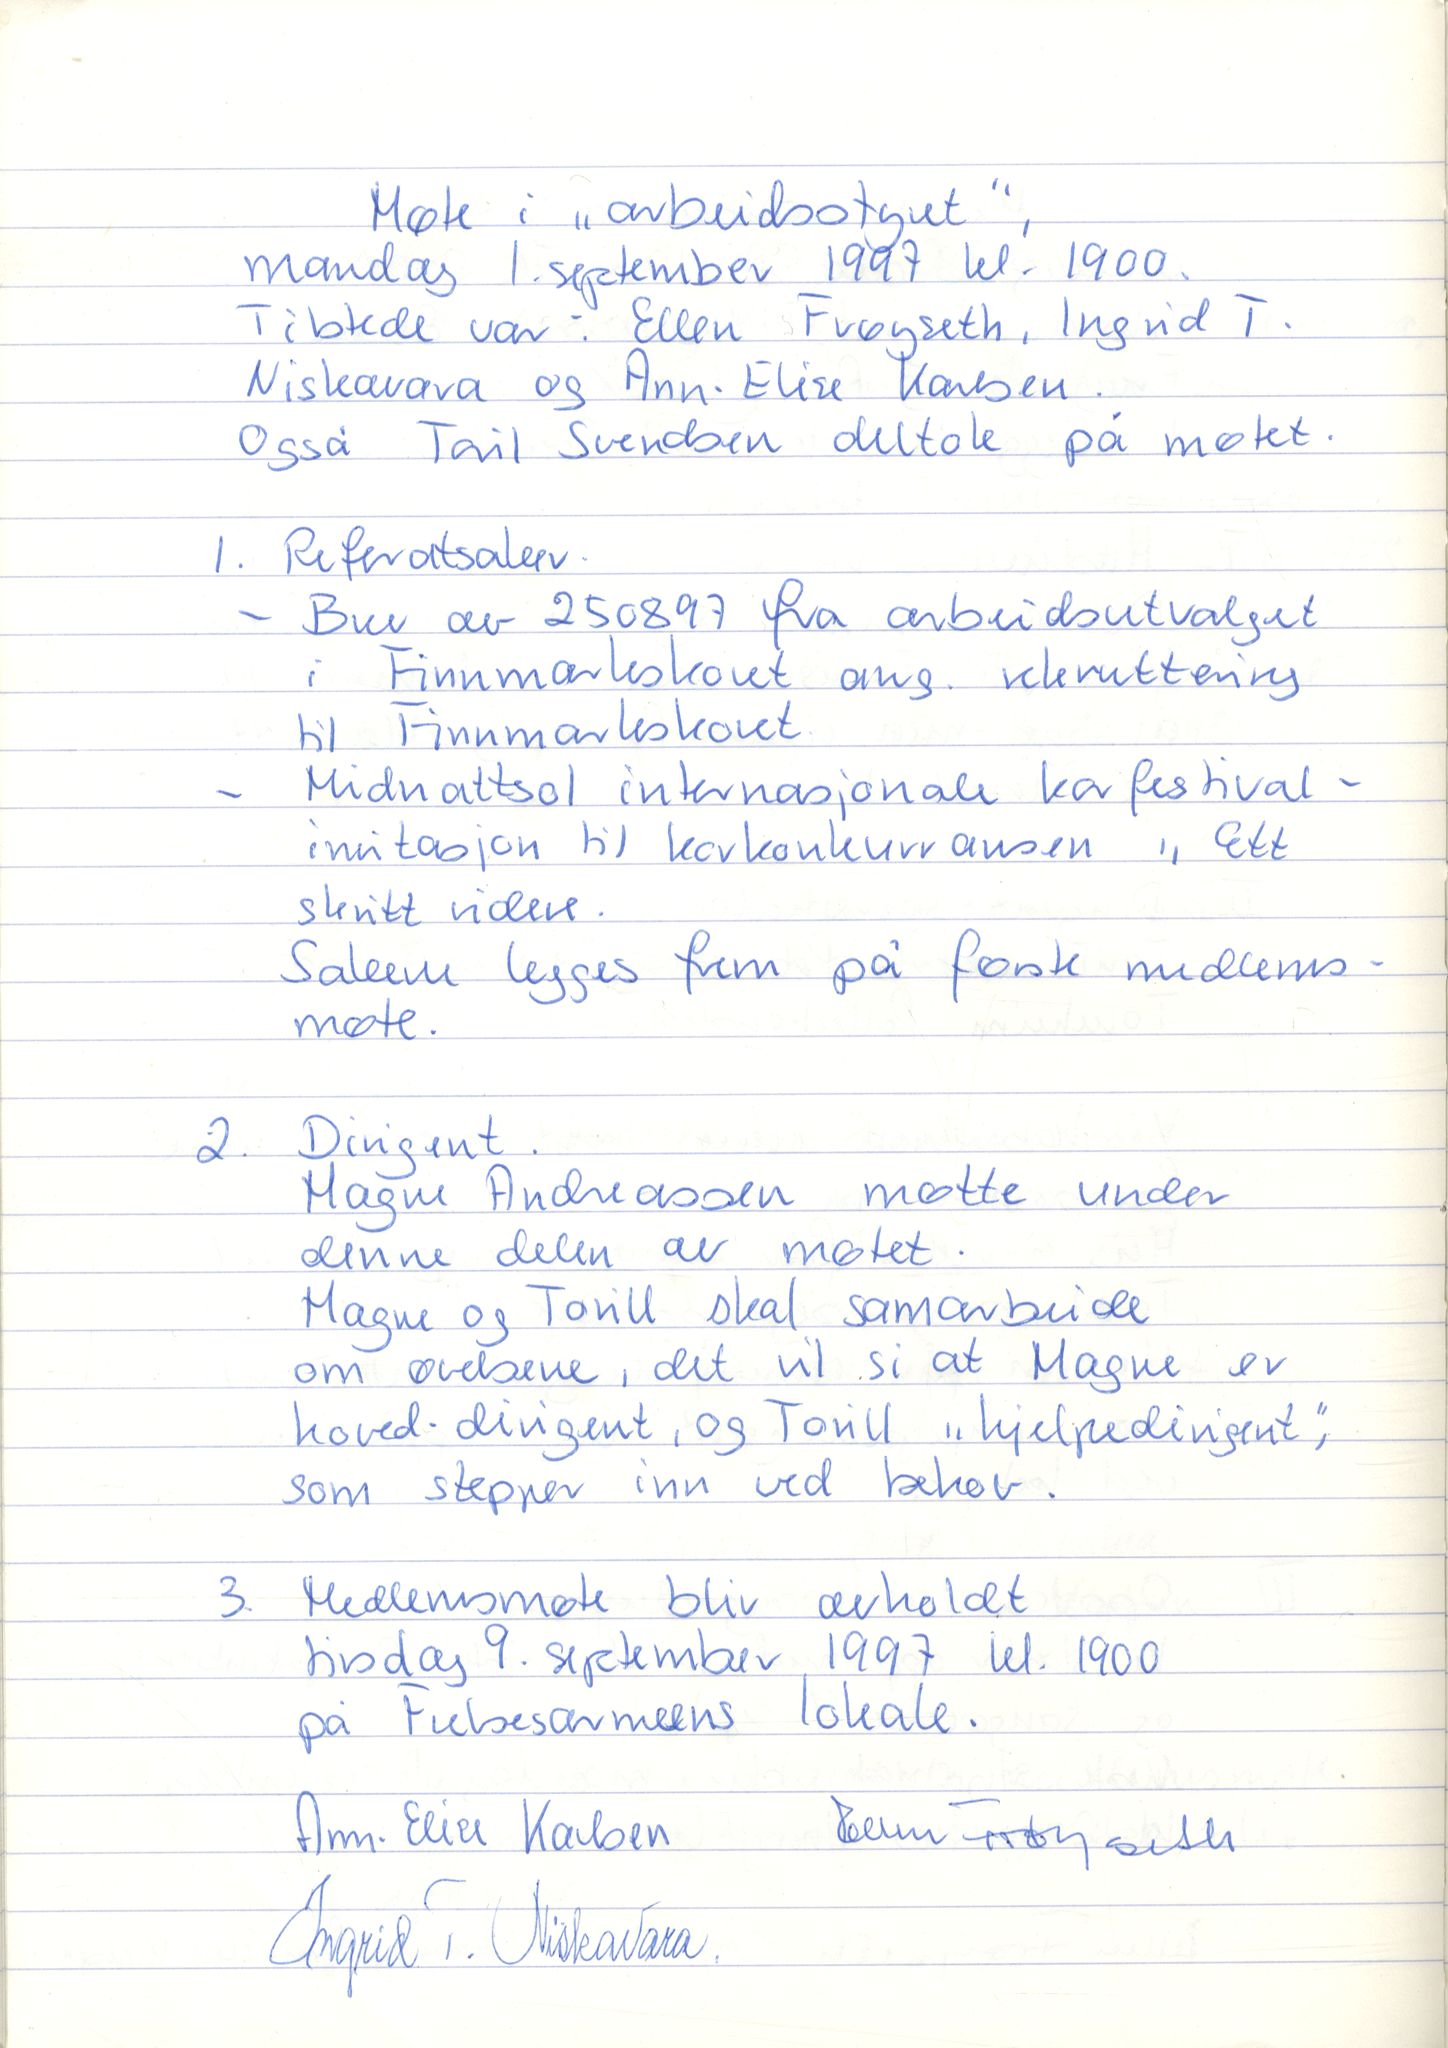 Møte i „arbeidsstyret“,
mandag 1. september 1997 kl. 1900.
Tilstede var: Ellen Frøyseth, Ingrid T.
Niskavara og Ann-Elise Karlsen.
Også Toril Svendsen deltok på møtet.
1. Referatsaker.
- Brev av 250897 fra arbeidsutvalget
i Finnmarkskoret ang. rekruttering
til Finnmarkskoret.
- Midnattsol internasjonale korfestival -
invitasjon til korkonkurransen „Ett
skritt videre.
Sakene legges frem på første medlems-
møte.
2. Dirigent.
Magne Andreassen møtte under
denne delen av møtet.
Magne og Torill skal samarbeide
om øvelsene, det vil si at Magne er
hoved-dirigent, og Torill „hjelpedirigent“,
som stepper inn ved behov.
3. Medlemsmøte bliv avholdt
tirsdag 9. september 1997 kl. 1900
på Frelsesarmeens lokale.
Ann-Elise Karlsen Ellen Frøyseth
Ingrid T. Niskavara.